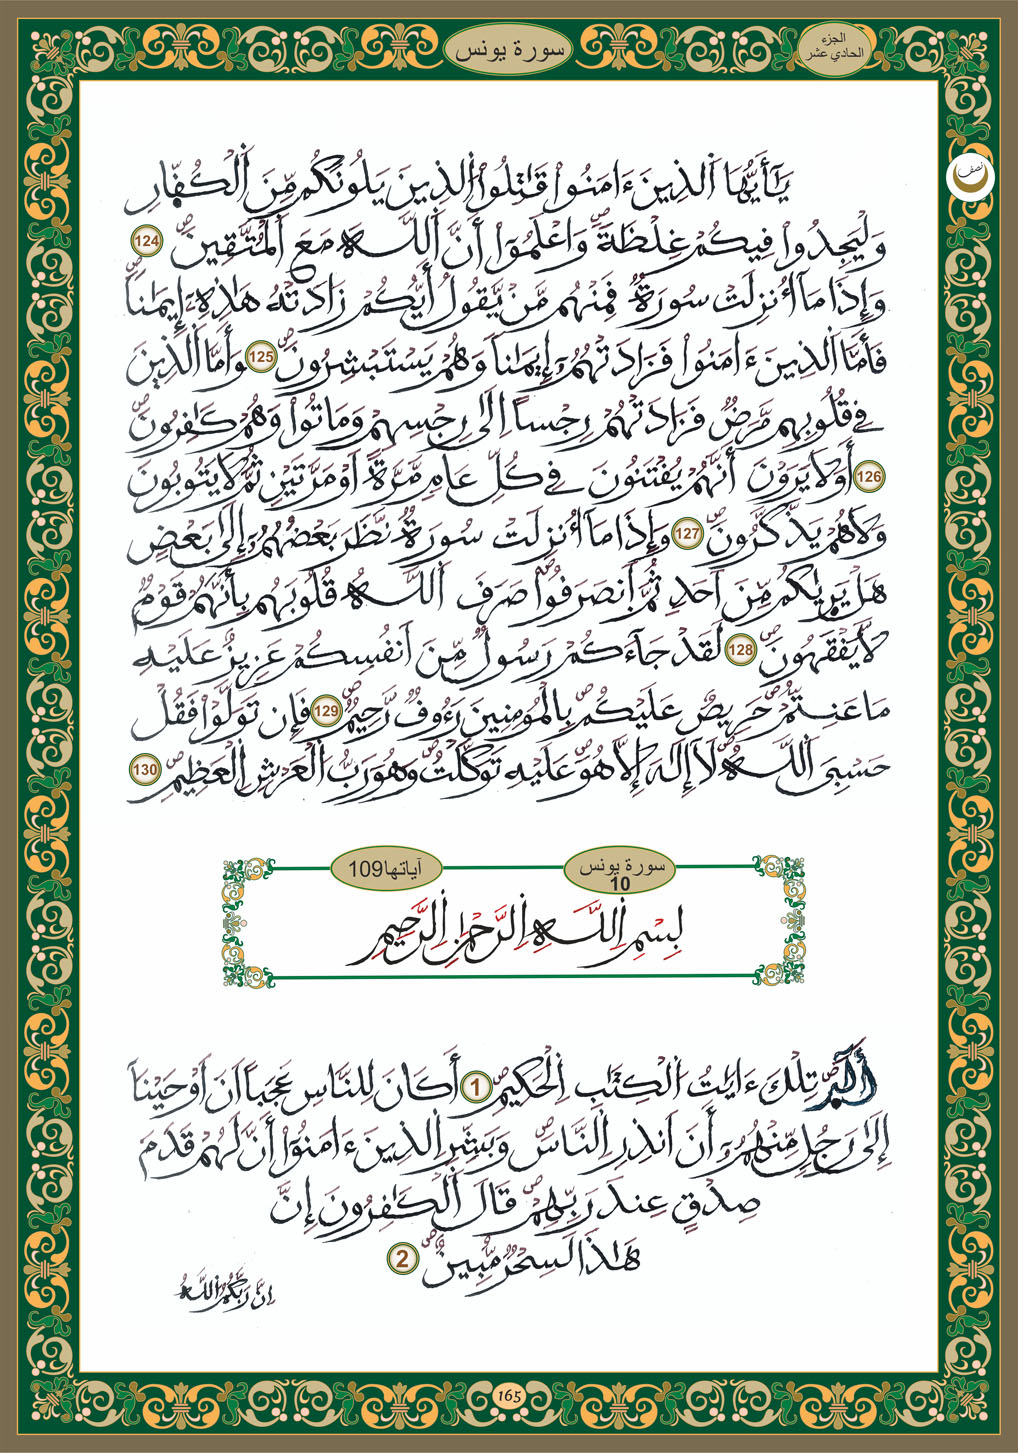 سورة يونس
الجزء
الحادي عشر
نصف
يَٰٓأَيُّهَا اَ۬لذِينَ ءَامَنُواْ قَٰتِلُواْ اُ۬لذِينَ يَلُونَكُم مِّنَ اَ۬لْكُفّ۪ارِ
وَلْيَجِدُواْ فِيكُمْ غِلْظَةٗۖ وَاعْلَمُوٓاْ أَنَّ اَ۬للَّهَ مَعَ اَ۬لْمُتَّقِينَۖ 124
وَإِذَا مَآ أُنزِلَتْ سُورَةٞ فَمِنْهُم مَّنْ يَّقُولُ أَيُّكُمْ زَادَتْهُ هَٰذِهِۦٓ إِيمَٰناٗۖ
فَأَمَّا اَ۬لذِينَ ءَامَنُواْ فَزَادَتْهُمُۥٓ إِيمَٰناٗ وَهُمْ يَسْتَبْشِرُونَۖ 125 وَأَمَّا اَ۬لذِينَ
فِے قُلُوبِهِم مَّرَضٞ فَزَادَتْهُمْ رِجْساً إِلَىٰ رِجْسِهِمْ وَمَاتُواْ وَهُمْ كَٰفِرُونَۖ
126 أَوَلَا يَرَوْنَ أَنَّهُمْ يُفْتَنُونَ فِے كُلِّ عَامٖ مَّرَّةً اَوْ مَرَّتَيْنِ ثُمَّ لَا يَتُوبُونَ
وَلَا هُمْ يَذَّكَّرُونَۖ 127 وَإِذَا مَآ أُنزِلَتْ سُورَةٞ نَّظَرَ بَعْضُهُمُۥٓ إِلَىٰ بَعْضٍ
هَلْ يَر۪ىٰكُم مِّنَ اَحَدٖ ثُمَّ اَ۪نصَرَفُواْۖ صَرَفَ اَ۬للَّهُ قُلُوبَهُم بِأَنَّهُمْ قَوْمٞ
لَّا يَفْقَهُونَۖ 128 لَقَدْ جَآءَكُمْ رَسُولٞ مِّنَ اَنفُسِكُمْ عَزِيزٌ عَلَيْهِ
مَا عَنِتُّمْۖ حَرِيصٌ عَلَيْكُمۖ بِالْمُومِنِينَ رَءُوفٞ رَّحِيمٞۖ 129 فَإِن تَوَلَّوْاْ فَقُلْ
حَسْبِيَ اَ۬للَّهُۖ لَآ إِلَٰهَ إِلَّا هُوَۖ عَلَيْهِ تَوَكَّلْتُۖ وَهُوَ رَبُّ اُ۬لْعَرْشِ اِ۬لْعَظِيمِۖ 130
سورة يونس
10
آياتها109
بِسْمِ اِ۬للَّهِ اِ۬لرَّحْمَٰنِ اِ۬لرَّحِيمِ
أَلَٓر۪ۖ تِلْكَ ءَايَٰتُ اُ۬لْكِتَٰبِ اِ۬لْحَكِيمِۖ 1 أَكَانَ لِلنَّاسِ عَجَباً اَنَ اَوْحَيْنَآ
إِلَىٰ رَجُلٖ مِّنْهُمُۥٓ أَنَ اَنذِرِ اِ۬لنَّاسَۖ وَبَشِّرِ اِ۬لذِينَ ءَامَنُوٓاْ أَنَّ لَهُمْ قَدَمَ
صِدْقٍ عِندَ رَبِّهِمْۖ قَالَ اَ۬لْكَٰفِرُونَ إِنَّ
هَٰذَا لَسِحْرٞ مُّبِينٌۖ 2
إِنَّ رَبَّكُمُ اُ۬للَّهُ
165